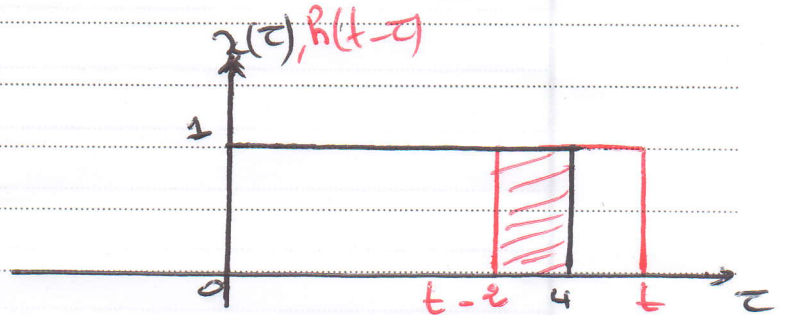 x(τ), h(t-τ)
1
0 t-2 4 t τ